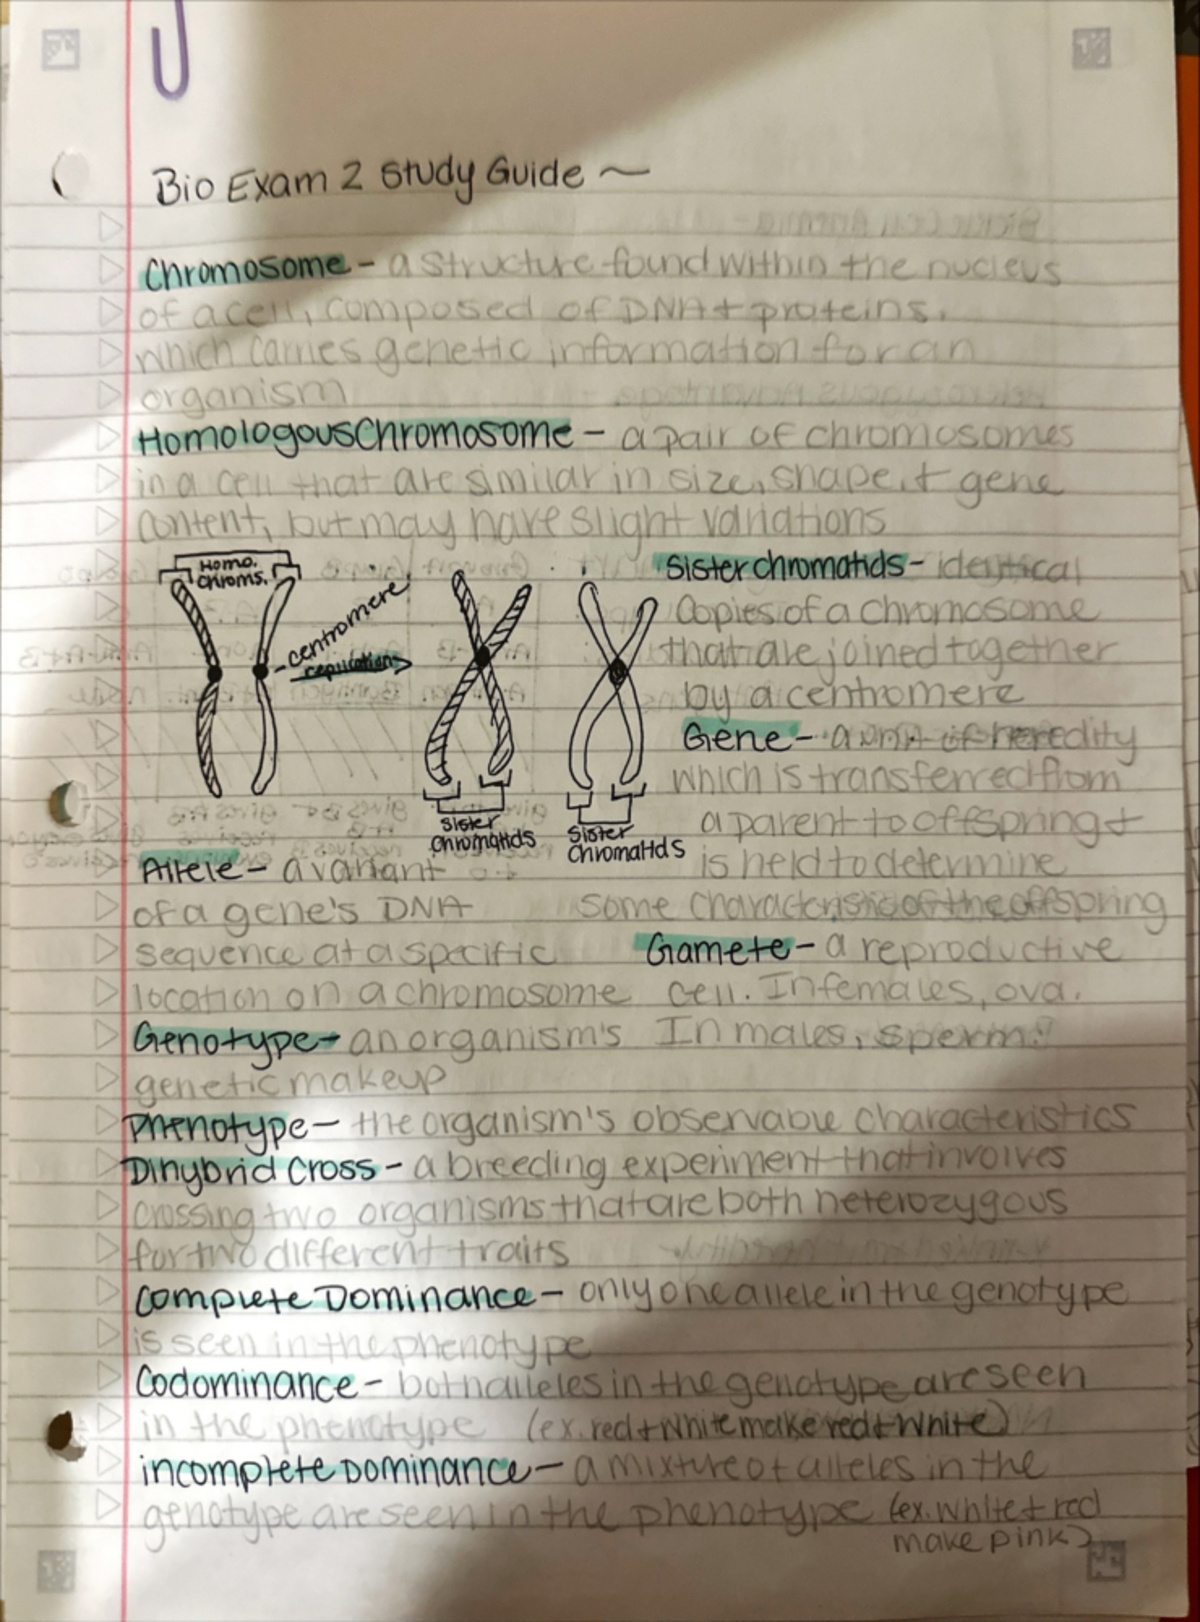 Bio Exam 2 Study Guide ~
Chromosome - a structure found within the nucleus
of a cell, composed of DNA + proteins.
which carries genetic information for an
organism
Homologous Chromosome - a pair of chromosomes
in a cell that are similar in size, shape, + gene
content, but may have slight variations
Homo.
Chroms.
centromere
replication
Sister
Chromatids
Sister
Chromatids
Sister chromatids - identical
copies of a chromosome
that are joined together
by a centromere
Gene - a unit of heredity
which is transferred from
a parent to offspring +
is held to determine
some characteristic of the offspring
Allele - a variant
of a gene's DNA
sequence at a specific
location on a chromosome
Gamete - a reproductive
cell. In females, ova.
In males, sperm.
Genotype - an organism's
genetic makeup
Phenotype - the organism's observable characteristics
Dihybrid Cross - a breeding experiment that involves
crossing two organisms that are both heterozygous
for two different traits
Complete Dominance - only one allele in the genotype
is seen in the phenotype
Codominance - both alleles in the genotype are seen
in the phenotype (ex. red + white make red + white)
incomplete Dominance - a mixture of alleles in the
genotype are seen in the phenotype (ex. white + red
make pink)